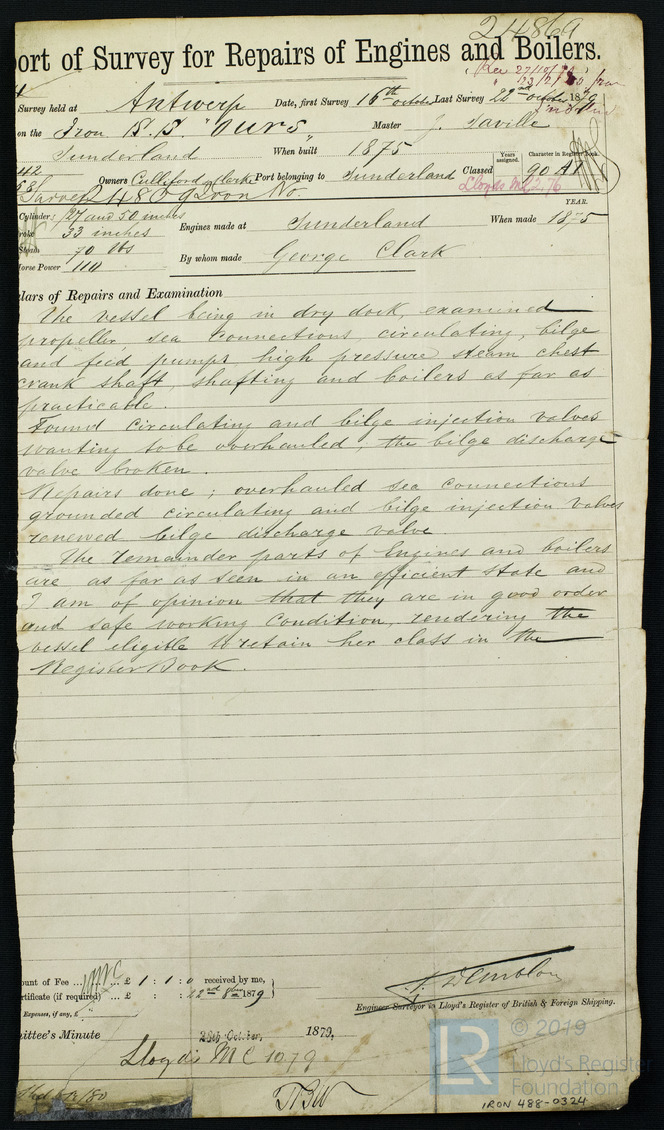 24869
ort of Survey for Repairs of Engines and Boilers.
Survey held at Antwerp Date, first Survey 16th october Last Survey 22nd october 1879
on the Iron S.S. "Ours" Master J. Saville
Sunderland When built 1875
Owners Culliford & Clarke Port belonging to Sunderland Classed Years assigned. 90 Character in Register Book. A1
Lloyds MC 2.76
24869 Iron No.
Cylinder: 27 and 50 inches
33 inches
Steam 70 lbs
Horse Power 110
Engines made at Sunderland When made YEAR. 1875
By whom made George Clark
lars of Repairs and Examination
The vessel being in dry dock, examined
propeller, sea connections, circulating, bilge
and feed pumps high pressure steam chest
crank shaft, shafting and boilers as far as
practicable.
Found circulating and bilge injection valves
wanting to be overhauled, the bilge discharge
valve broken.
Repairs done; overhauled sea connections
grounded circulating and bilge injection valves
renewed bilge discharge valve
The remainder parts of Engines and boilers
are as far as seen in an efficient state and
I am of opinion that they are in good order
and safe working condition, rendering the
vessel eligible to retain her class in the
Register Book.
ount of Fee ... £ 1 : 1 : 0 received by me,
rtificate (if required) ... £ : : 22nd 8ber 1879
Expenses, if any, £
Engineer Surveyor to Lloyd's Register of British & Foreign Shipping.
ittee's Minute 28th October, 1879,
Lloyds MC 10.79
© 2019
LR Lloyd's Register
Foundation
IRON 488-0324